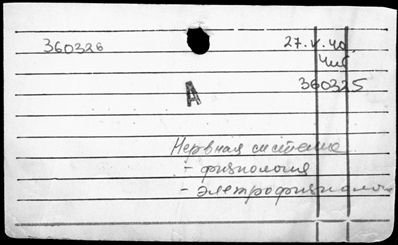 360326
27.V.40.
Чит.
360325
А
Нервная система
- физиология
- элетрофизиология